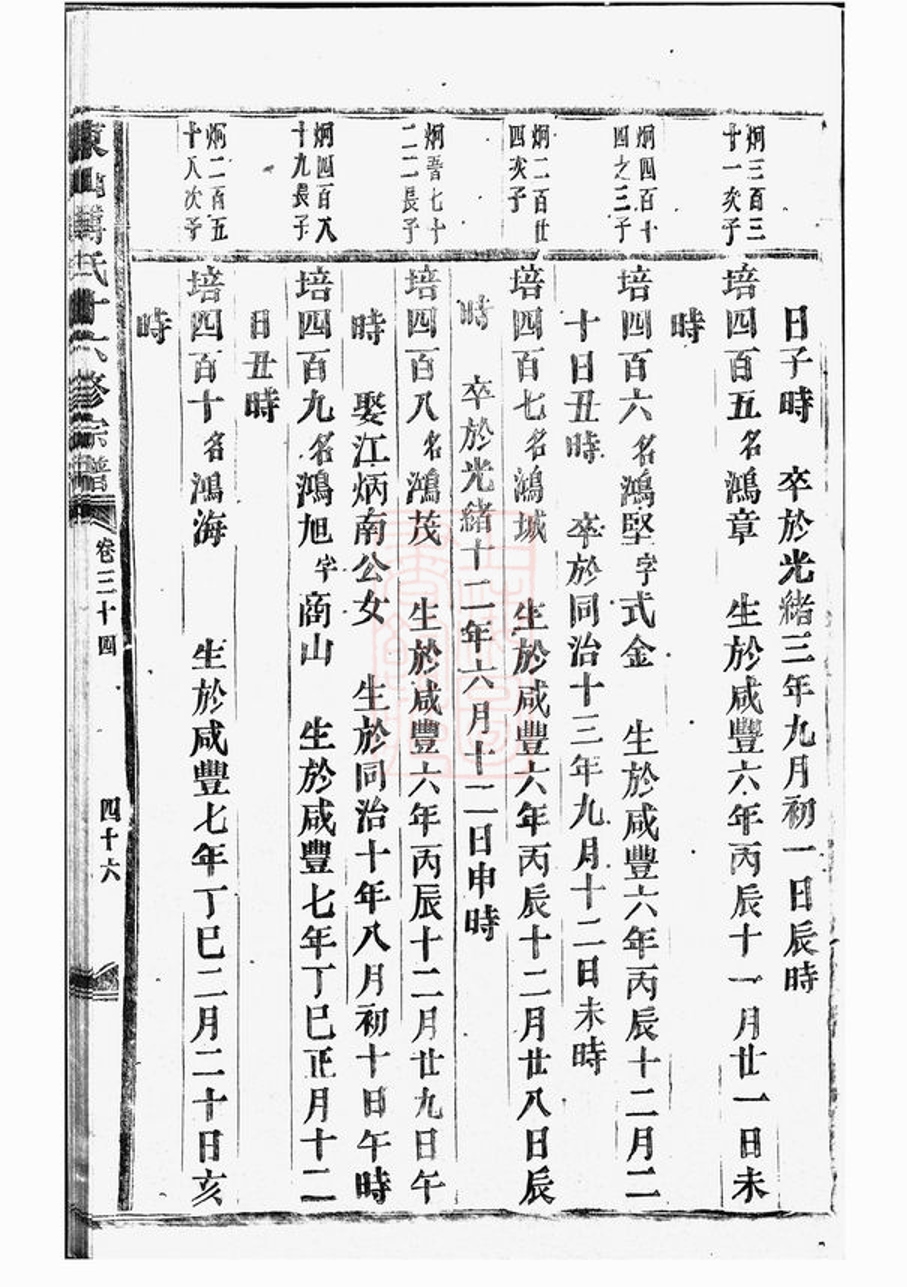 日子時　卒於光緒三年九月初一日辰時
炯三百三
廿一次子
培四百五名鴻章　生於咸豐六年丙辰十一月廿一日未
時
炯四百十
四之三子
培四百六名鴻堅字式金　生於咸豐六年丙辰十二月二
十日丑時　卒於同治十三年九月十二日未時
炯二百廿
四次子
培四百七名鴻城　生於咸豐六年丙辰十二月廿八日辰
時　卒於光緒十二年六月十二日申時
炯七十
二二長子
培四百八名鴻茂　生於咸豐六年丙辰十二月廿九日午
時　娶江炳南公女　生於同治十年八月初十日午時
炯四百八
十九長子
培四百九名鴻旭字商山　生於咸豐七年丁巳正月十二
日丑時
炯二百五
十八次子
培四百十名鴻海　生於咸豐七年丁巳二月二十日亥
時
氏十六修宗譜
卷三十四
四十六